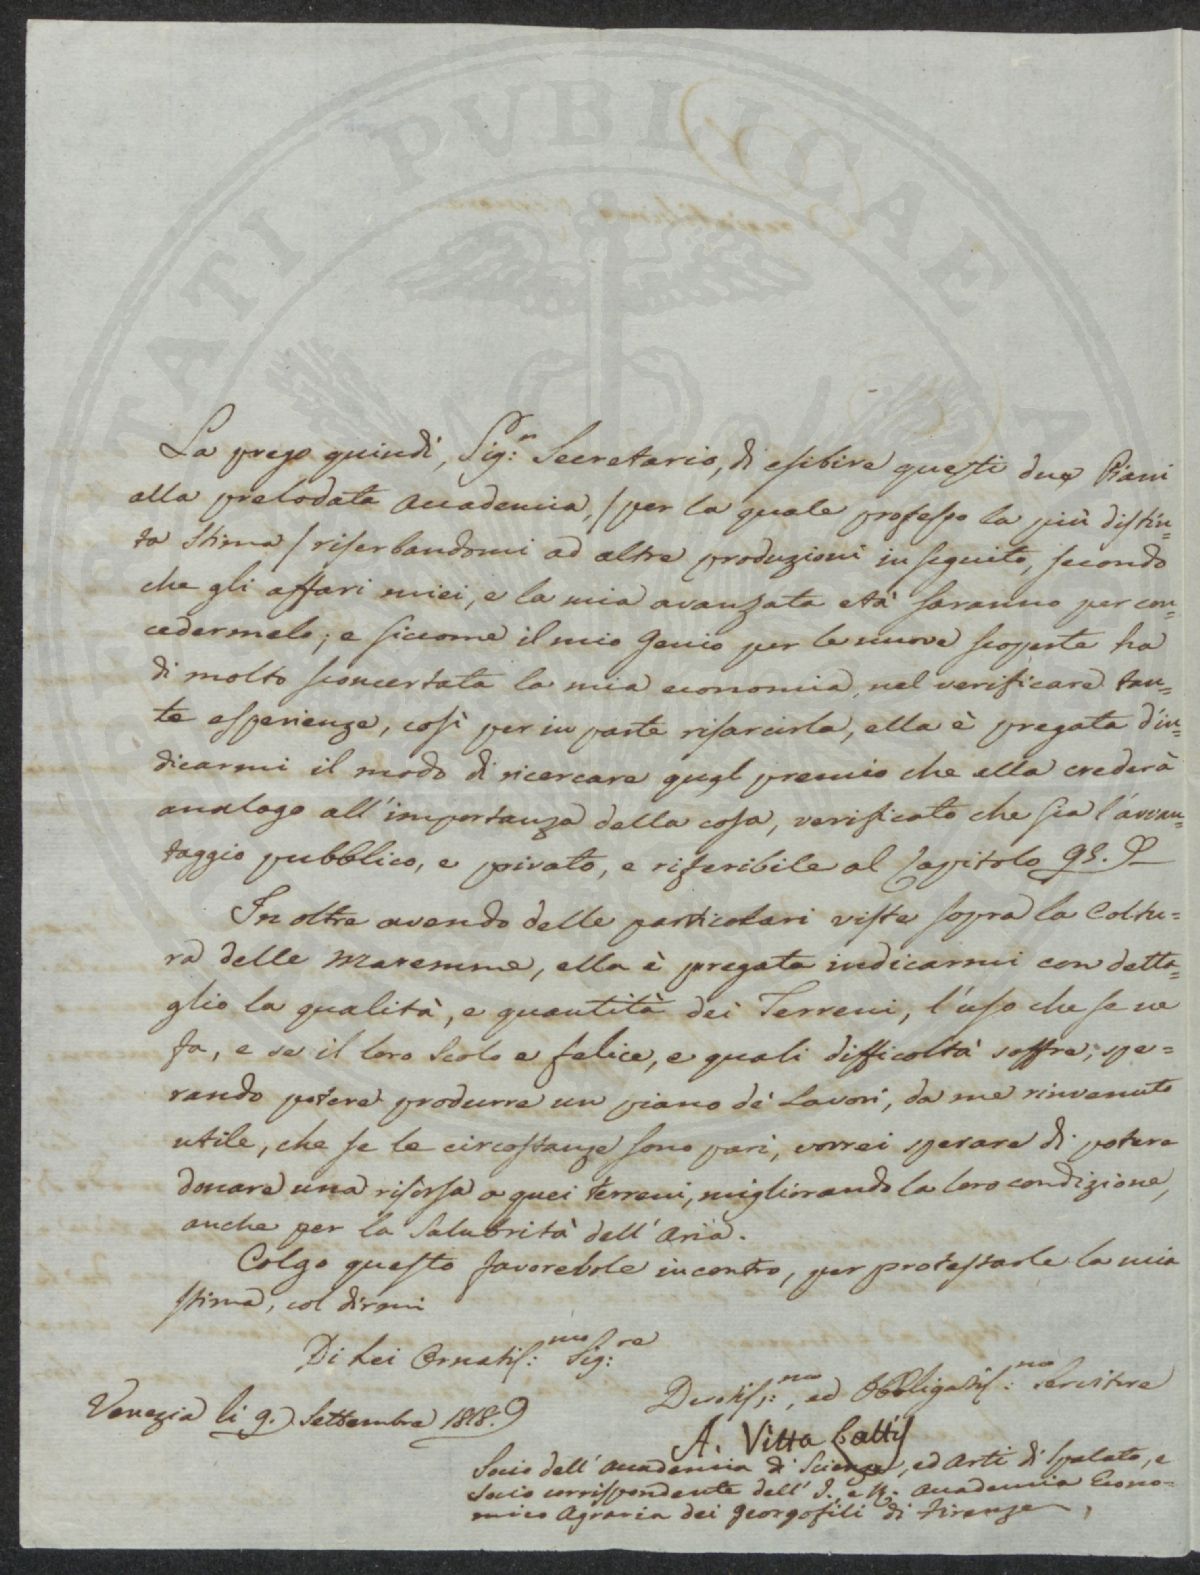 PUBLICAE
La prego quindi, Sig.r Secretario, di esibire questi due Piani
alla prelodata Accademia, / per la quale professo la più distin=
ta Stima / riserbandomi ad altre produzioni in seguito, secondo
che gli affari miei, e la mia avanzata età saranno per con=
cedermelo; e siccome il mio Genio per le nuove scoperte ha
di molto sconcertata la mia economia, nel verificare tan=
te esperienze, così per in parte risarcirla, ella è pregata d'in=
dicarmi il modo di ricercare quel premio che ella crederà
analogo all'importanza della cosa, verificato che sia l'avvan=
taggio pubblico, e privato, e riferibile al Capitolo
In oltre avendo delle particolari viste sopra la Coltu=
ra delle Maremme, ella è pregata indicarmi con detta=
glio la qualità, e quantità dei Terreni, l'uso che se ne
fa, e se il loro scolo e felice, e quali difficoltà soffre; spe=
rando potere produrre un piano de' Lavori, da me rinvenuto
utile, che se le circostanze sono pari, vorrei sperare di potere
donare una risorsa a quei terreni, migliorando la loro condizione,
anche per la Salubrità dell'Aria.
Colgo questo favorebole incontro, per protestarle la mia
stima, col dirmi
Di Lei Ornatis:mo Sig:re
Devotis:mo, ed Obbligatis:mo Servitore
Venezia li 9. Settembre 1818.
A. Vitta Cattis
Socio dell'Accademia di Scienze, ed Arti di Spalato, e
Socio corrispondente dell'I. e R. Accademia Econo=
mico Agraria dei Georgofili di Firenze